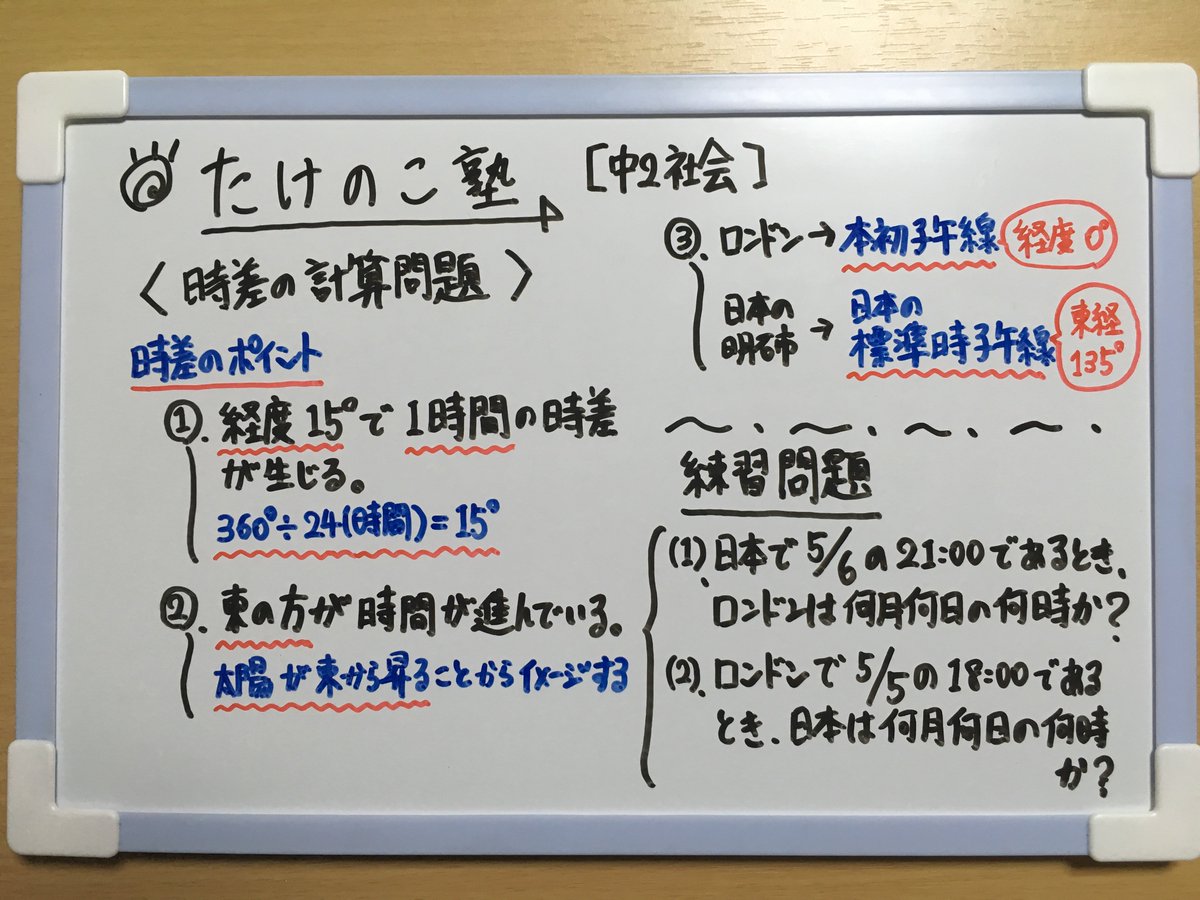 たけのこ塾
[中2社会]
〈時差の計算問題〉
時差のポイント
①.経度15°で1時間の時差
が生じる。
360°÷24(時間)=15°
②.東の方が時間が進んでいる。
太陽が東から昇ることからイメージする
③.ロンドン→本初子午線 経度0°
日本の
明石市
→
日本の
標準時子午線
東経
135°
練習問題
(1).日本で5/6の21:00であるとき、
ロンドンは何月何日の何時か?
(2).ロンドンで5/5の18:00である
とき、日本は何月何日の何時
か?